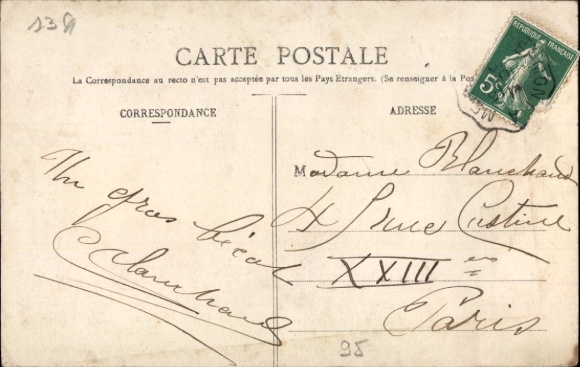 138
CARTE POSTALE
La Correspondance au recto n'est pas acceptée par tous les Pays Etrangers. (Se renseigner à la Pos
REPUBLIQUE FRANÇAISE
5c
CORRESPONDANCE
ADRESSE
Un gros bécot
Blanchaud
Madame Blanchaud
4 rue Custine
XXIII es
Paris
95